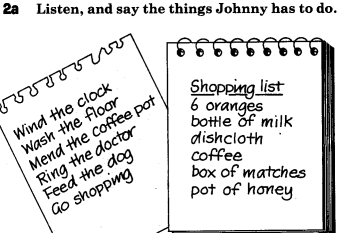 2a Listen, and say the things Johnny has to do.
Wind the clock
Wash the floor
Mend the coffee pot
Ring the doctor
Feed the dog
Go shopping
Shopping list
6 oranges
bottle of milk
dishcloth
coffee
box of matches
pot of honey